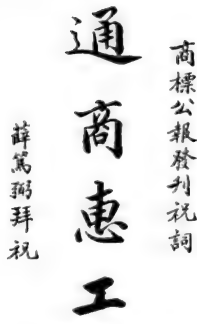 商標公報發刊祝詞
通商惠工
薛篤弼拜祝